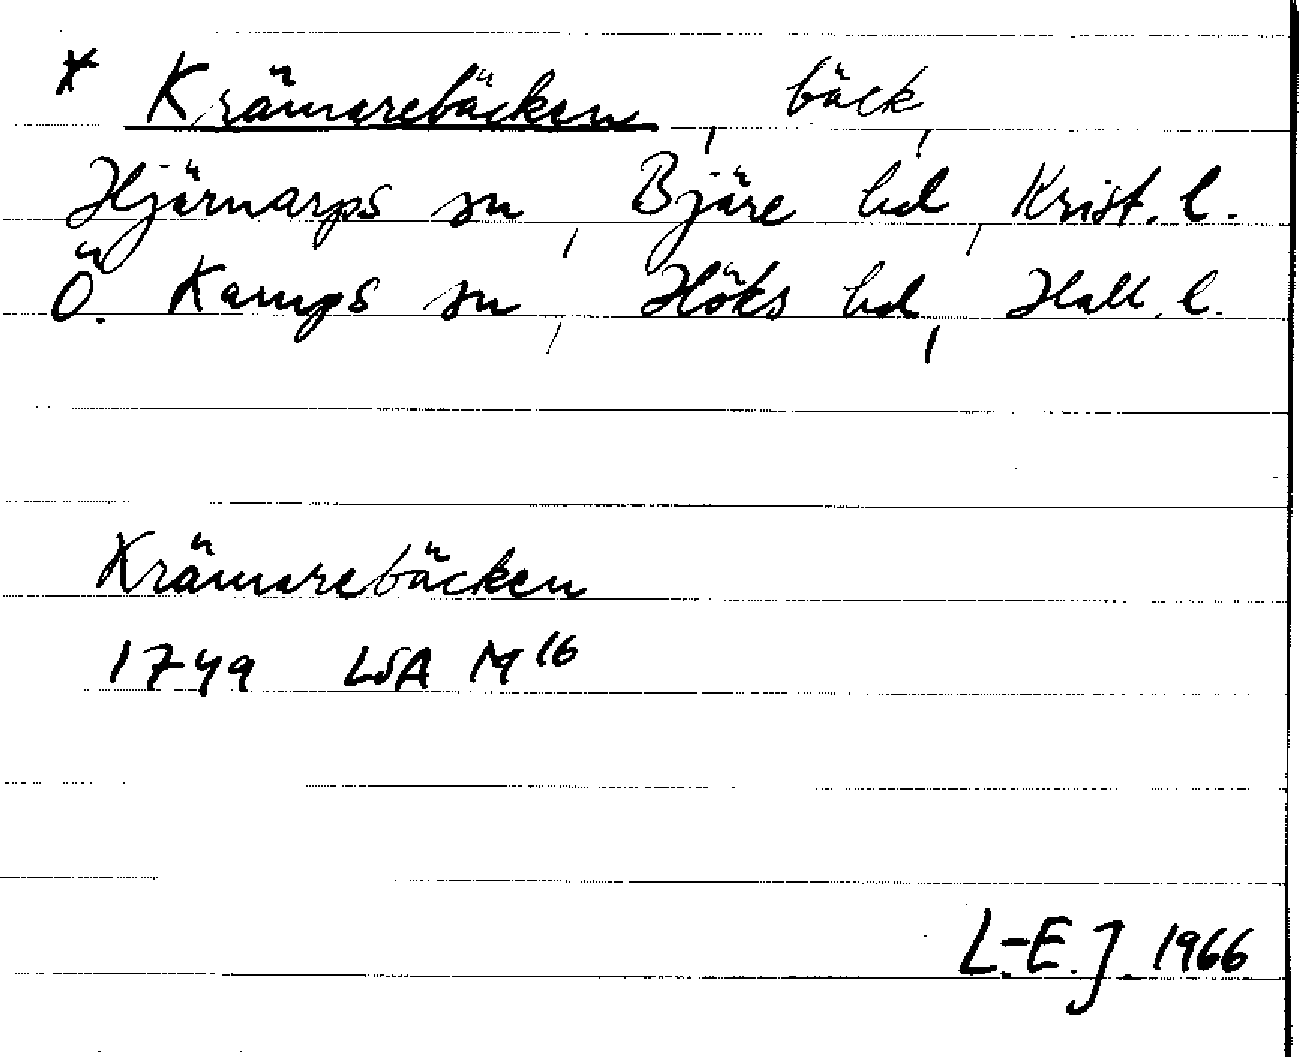 * Krämarebäcken, bäck,
Hjärnarps sn, Bjäre hd, Krist. l.
Ö. Karups sn, Höks hd, Hall. l.
Krämarebäcken
1749 LSA M 16
L.-E. J. 1966